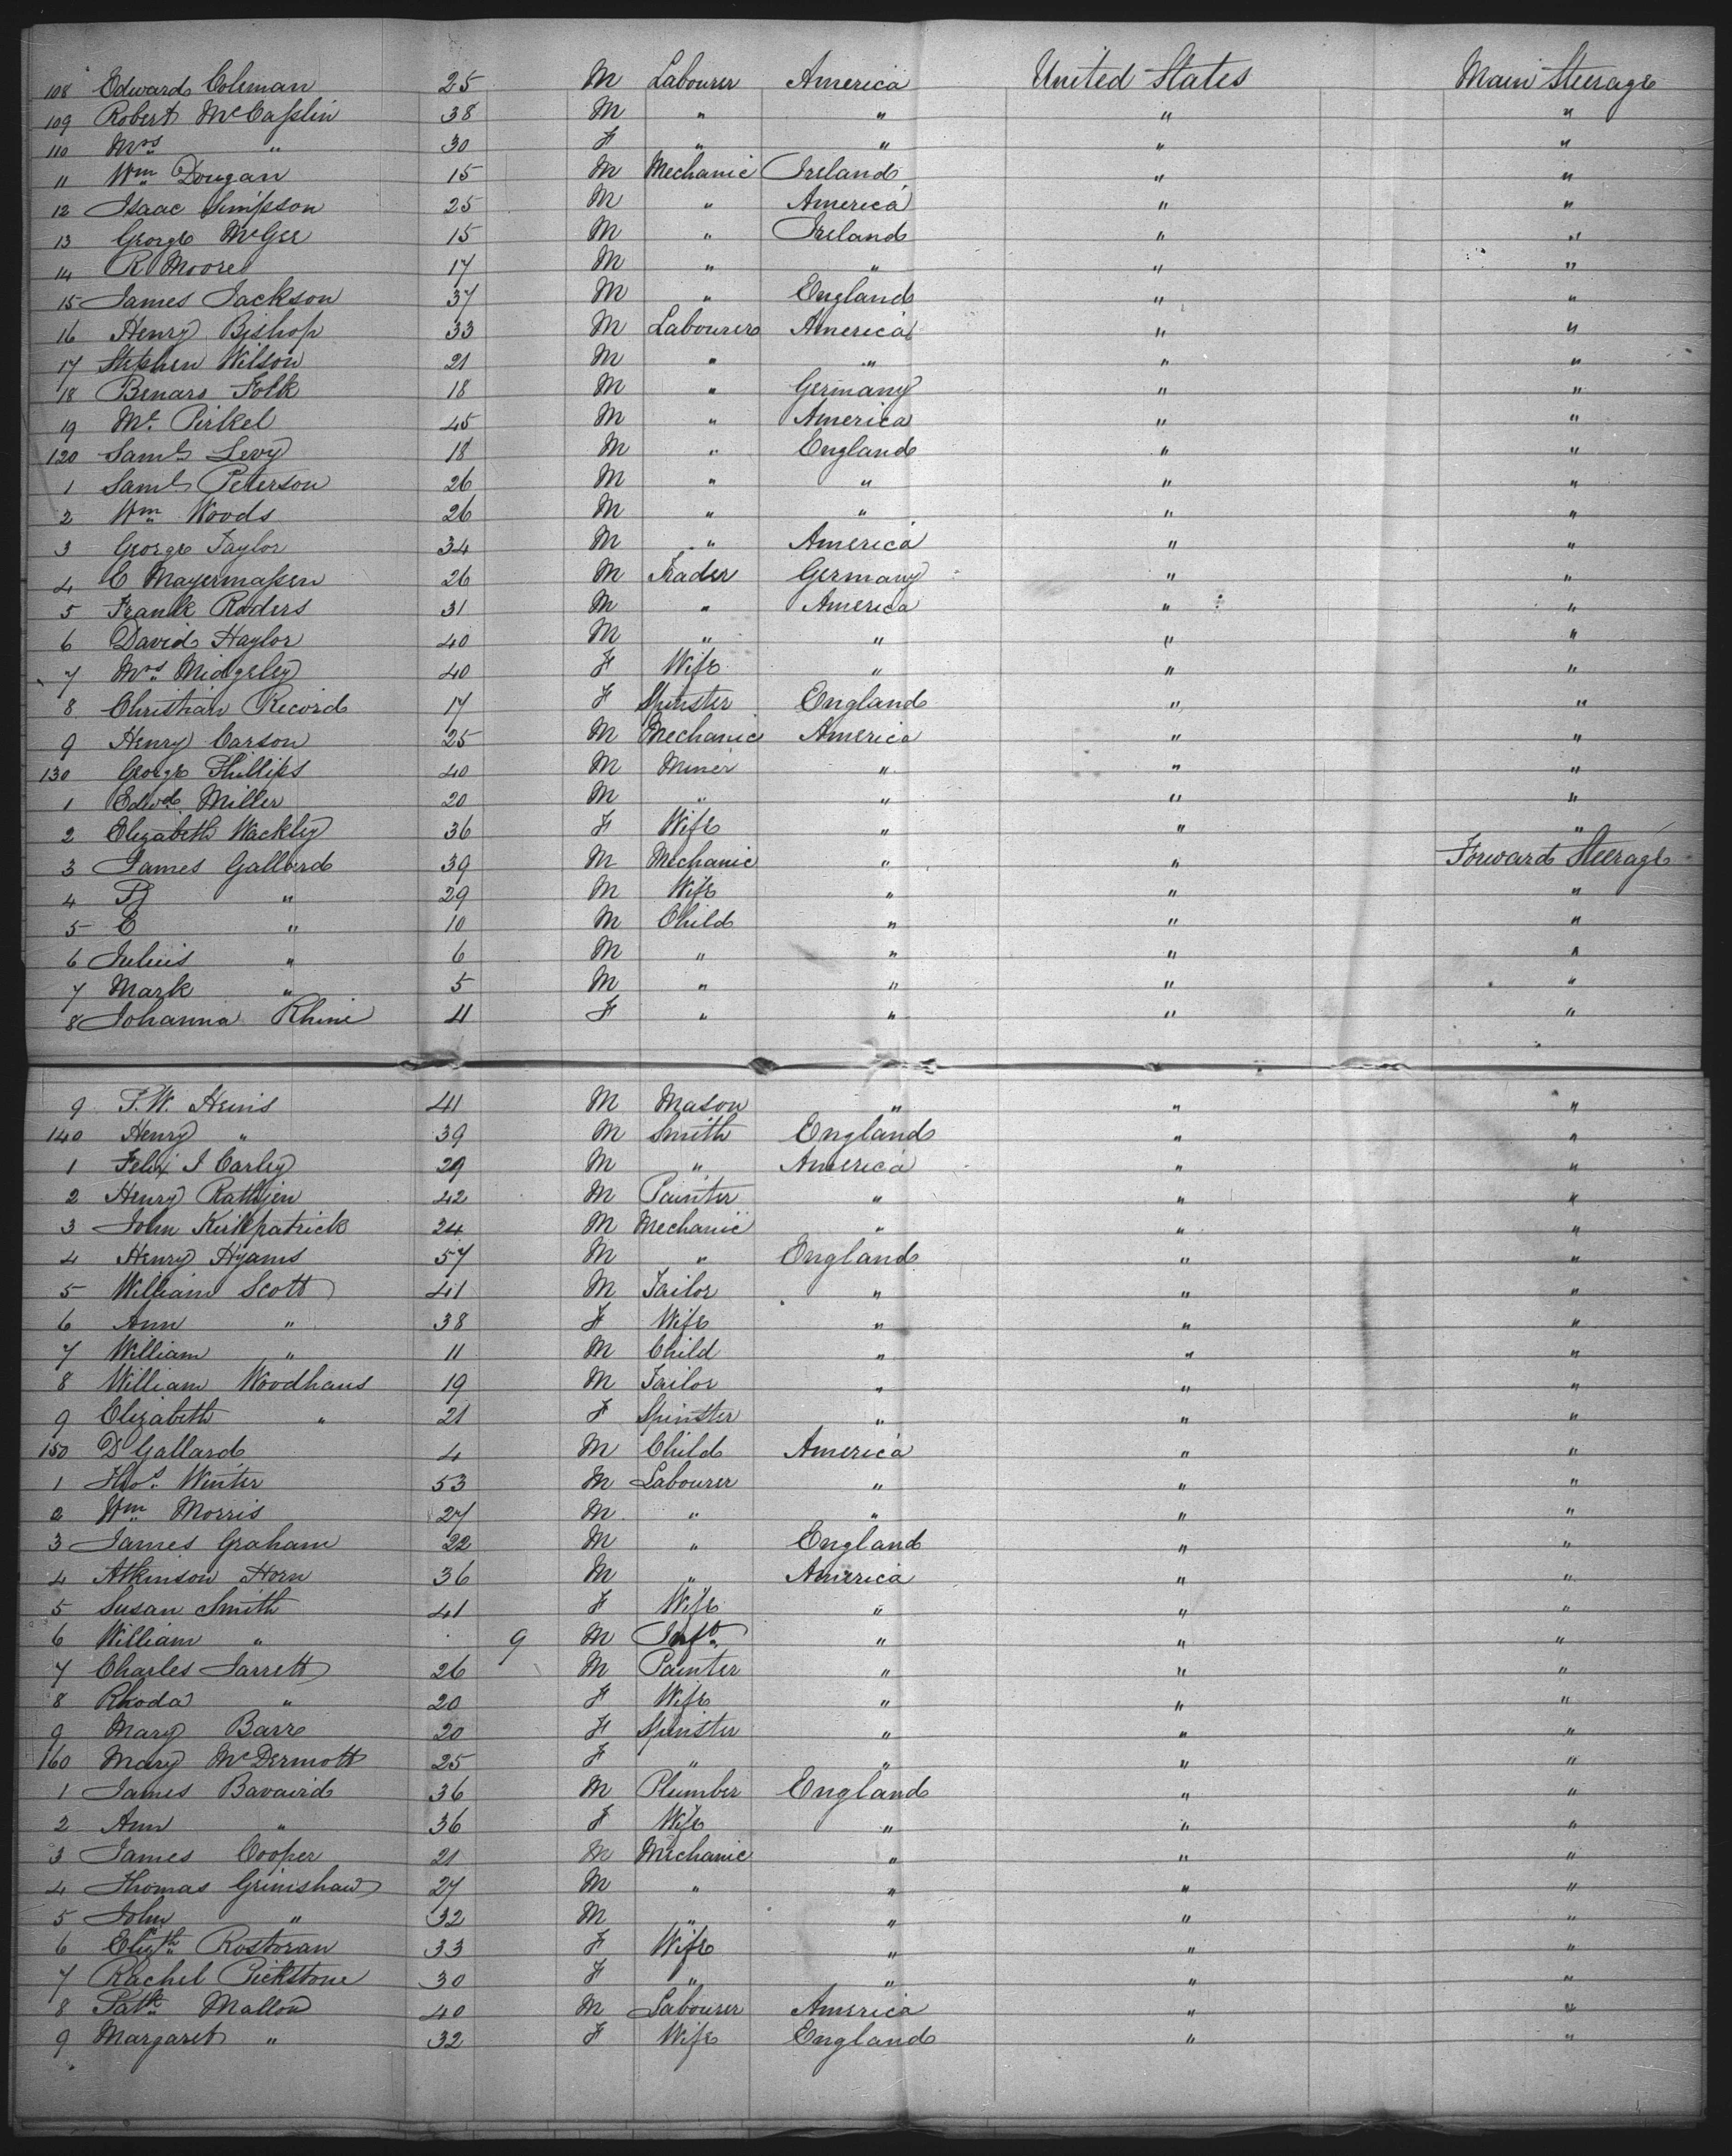 108 Edward Coleman 25 M Labourer America United States Main Steerage
109 Robert McCaslin 38 M " " " "
110 Mrs " 30 F " " " "
11 Wm Dougan 15 M Mechanic Ireland " "
12 Isaac Simpson 25 M " America " "
13 George McGee 15 M " Ireland " "
14 R Moore 17 M " " " "
15 James Jackson 37 M " England " "
16 Henry Bishop 33 M Labourer America " "
17 Stephen Wilson 21 M " " " "
18 Benars Folk 18 M " Germany " "
19 Mr. Pirkel 45 M " America " "
120 Saml Levy 18 M " England " "
1 Saml Peterson 26 M " " " "
2 Wm Woods 26 M " " " "
3 George Taylor 34 M " America " "
4 E Mayermassen 26 M Trader Germany " "
5 Frank Raders 31 M " America " "
6 David Haylor 40 M " " " "
7 Mrs Midgeley 40 F Wife " " "
8 Christian Record 17 F Spinster England " "
9 Henry Carson 25 M Mechanic America " "
130 George Phillips 40 M Miner " " "
1 Edwd Miller 20 M " " " "
2 Elizabeth Wackley 36 F Wife " " "
3 James Gallard 39 M Mechanic " " Forward Steerage
4 " 29 M Wife " " "
5 E " 10 M Child " " "
6 Julius " 6 M " " " "
7 Mark " 5 M " " " "
8 Johanna Rhine 11 F " " " "
9 T.W. Hewis 41 M Mason " " "
140 Henry " 39 M Smith England " "
1 Felix J Carley 29 M " America " "
2 Henry Rathjen 42 M Painter " " "
3 John Kirkpatrick 24 M Mechanic " " "
4 Henry Hyams 57 M " England " "
5 William Scott 41 M Tailor " " "
6 Ann " 38 F Wife " " "
7 William " 11 M Child " " "
8 William Woodhaus 19 M Tailor " " "
9 Elizabeth " 21 F Spinster " " "
150 D Gallard 4 M Child America " "
1 Thos. Winter 53 M Labourer " " "
2 Wm Morris 27 M " " " "
3 James Graham 22 M " England " "
4 Atkinson Horn 36 M " America " "
5 Susan Smith 41 F Wife " " "
6 William " 9 M Inft " " "
7 Charles Jarrett 26 M Painter " " "
8 Rhoda " 20 F Wife " " "
9 Mary Barre 20 F Spinster " " "
160 Mary McDermott 25 F " " " "
1 James Bavaird 36 M Plumber England " "
2 Ann " 36 F Wife " " "
3 James Cooper 21 M Mechanic " " "
4 Thomas Grimshaw 27 M " " " "
5 John " 32 M " " " "
6 Elizth Rostoran 33 F Wife " " "
7 Rachel Pickstone 30 F " " " "
8 Patk Mallon 40 M Labourer America " "
9 Margaret " 32 F Wife England " "